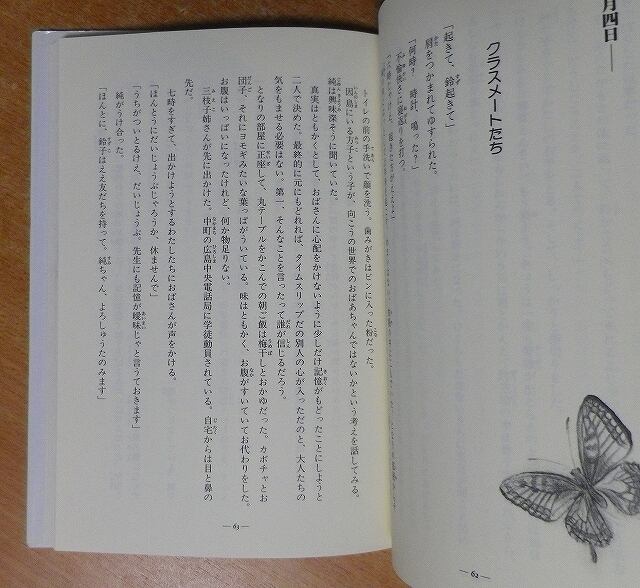 月四日――
クラスメートたち
「起きて、鈴起きて」
肩をつかまれてゆすられた。
「何時？　時計、鳴った？」
不愉快さに寝返りを打つ。
―62―
トイレの前の手洗いで顔を洗う。歯みがきはビンに入った粉だった。
因島にいる方子という子が、向こうの世界でのおばあちゃんではないかという考えを話してみる。
純は興味深そうに聞いていた。
真実はともかくとして、おばさんに心配をかけないように少しだけ記憶がもどったことにしようと
二人で決めた。最終的に元にもどれれば、タイムスリップだの別人の心が入っただのと、大人たちの
気をもませる必要はない。第一、そんなことを言ったって誰が信じるだろう。
となりの部屋に正座して、丸テーブルをかこんでの朝ご飯は梅干しとおかゆだった。カボチャとお
団子、それにヨモギみたいな葉っぱがういている。味はともかく、お腹がすいていてお代わりをした。
お腹はいっぱいになったけれど、何か物足りない。
三枝子姉さんが先に出かけた。中町の広島中央電話局に学徒動員されている。自宅からは目と鼻の
先だ。
七時をすぎて、出かけようとするわたしたちにおばさんが声をかける。
「ほんとうにだいじょうぶじゃろうか、休ませんで」
「うちがついとるけえ、だいじょうぶ。先生にも記憶が曖昧じゃと言うておきます」
純がうけ合った。
「ほんとに、鈴子はええ友だちを持って。純ちゃん、よろしゅうたのみます」
―63―